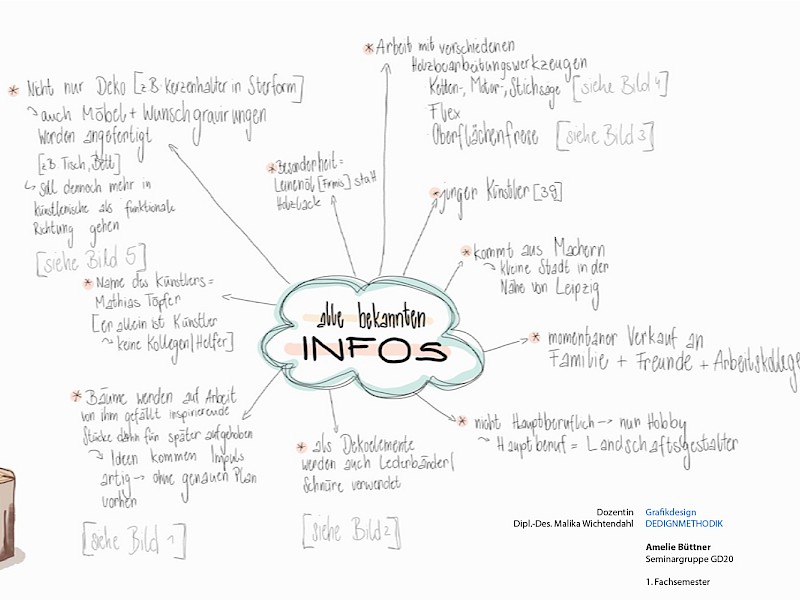 * Arbeit mit verschiedenen
Holzbearbeitungswerkzeugen
Ketten-, Motor-, Stichsäge [siehe Bild 4]
Flex
Oberflächenfräse [siehe Bild 3]
* Nicht nur Deko [z.B. Kerzenhalter in Sterform]
auch Möbel + Wunschgravirungen
worden angefertigt
[z.B. Tisch, Bett]
soll dennoch mehr in
künstlerische als funktionale
Richtung gehen
[siehe Bild 5]
* Besonderheit =
Leinenöl [Firnis] statt
Holzlack
* junger Künstler [39]
* kommt aus Machern
kleine Stadt in der
Nähe von Leipzig
* Name des Künstlers =
Mathias Töpfer
[er allein ist Künstler
keine Kollegen/Helfer]
alle bekannten
INFOS
* momentaner Verkauf an
Familie + Freunde + Arbeitskollege
* Bäume werden auf Arbeit
von ihm gefällt inspirierende
Stücke dann für später aufgehoben
Ideen kommen Impuls
artig → ohne genauen Plan
vorher
[siehe Bild 1]
* als Dekoelemente
werden auch Lederbänder/
Schnüre verwendet
[siehe Bild 2]
* nicht Hauptberuflich → nur Hobby
Hauptberuf = Landschaftsgestalter
Dozentin Grafikdesign
Dipl.-Des. Malika Wichtendahl DEDIGNMETHODIK
Amelie Büttner
Seminargruppe GD20
1. Fachsemester